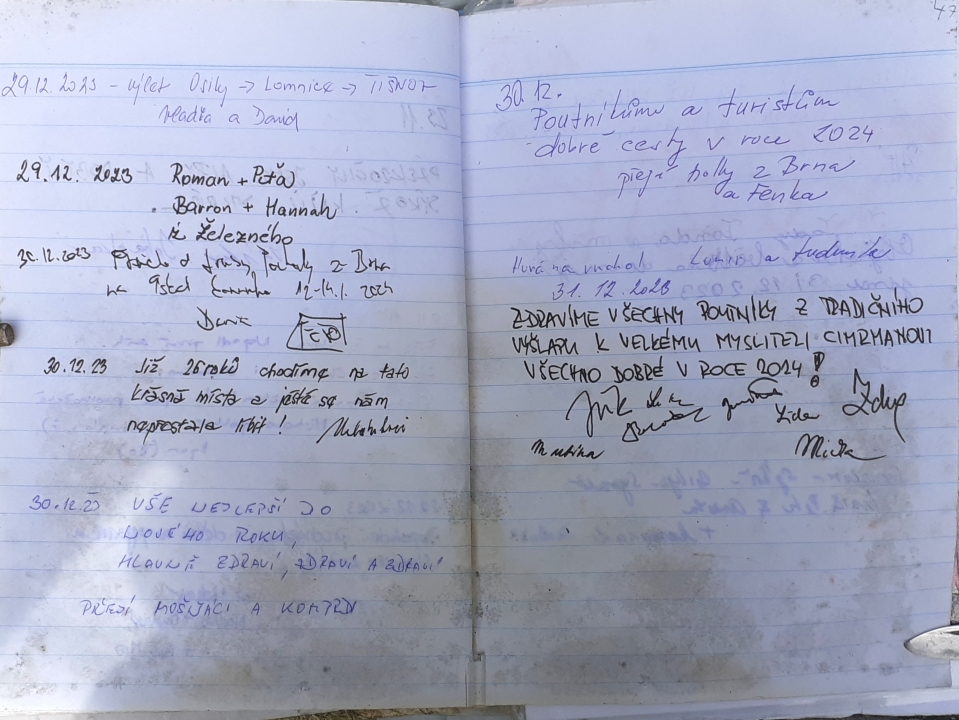 29.12.2023 - výlet Osiky → Lomnice → TIŠNOV
Vladka a David
29.12. 2023 Roman + Peťa
Barron + Hannah
ze Železného
30.12.2023 z Brna
na 12-14.1. 2024
30.12.23 Již 26 roků chodíme na tato
krásná místa a ještě se nám
neprestala líbit!
30.12.23 VŠE NEJLEPŠÍ DO
NOVÉHO ROKU,
HLAVNĚ ZDRAVÍ, ZDRAVÍ A ZDRAVÍ
PŘEJÍ MOŠŇÁCI A
47
30.12.
Poutníkům a turistům
dobré cesty v roce 2024
přejí holky z Brna
a Fenka
Hurá na vrchol a Ludmila
31. 12. 2023
ZDRAVÍME VŠECHNY POUTNÍKY Z TRADIČNÍHO
VÝŠLAPU K VELKÉMU MYSLITELI CIMRMANOVI
VŠECHNO DOBRÉ V ROCE 2024!
Martina Mirka